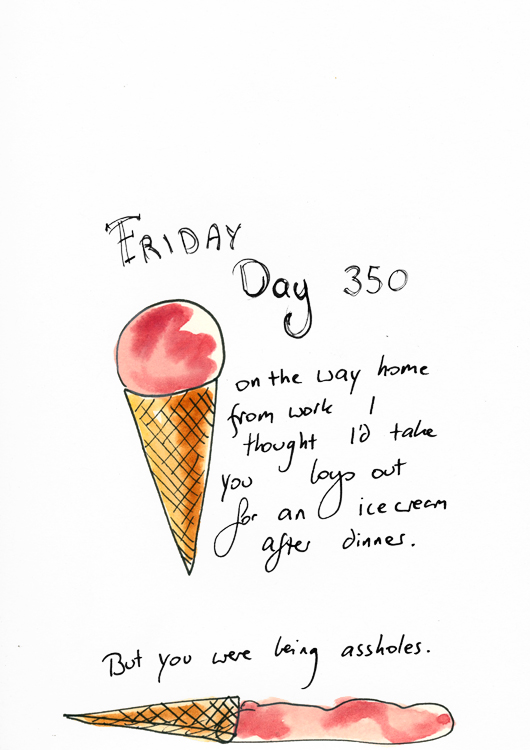 FRIDAY
Day 350
on the way home
from work I
thought I'd take
you boys out
for an ice cream
after dinner.
But you were being assholes.